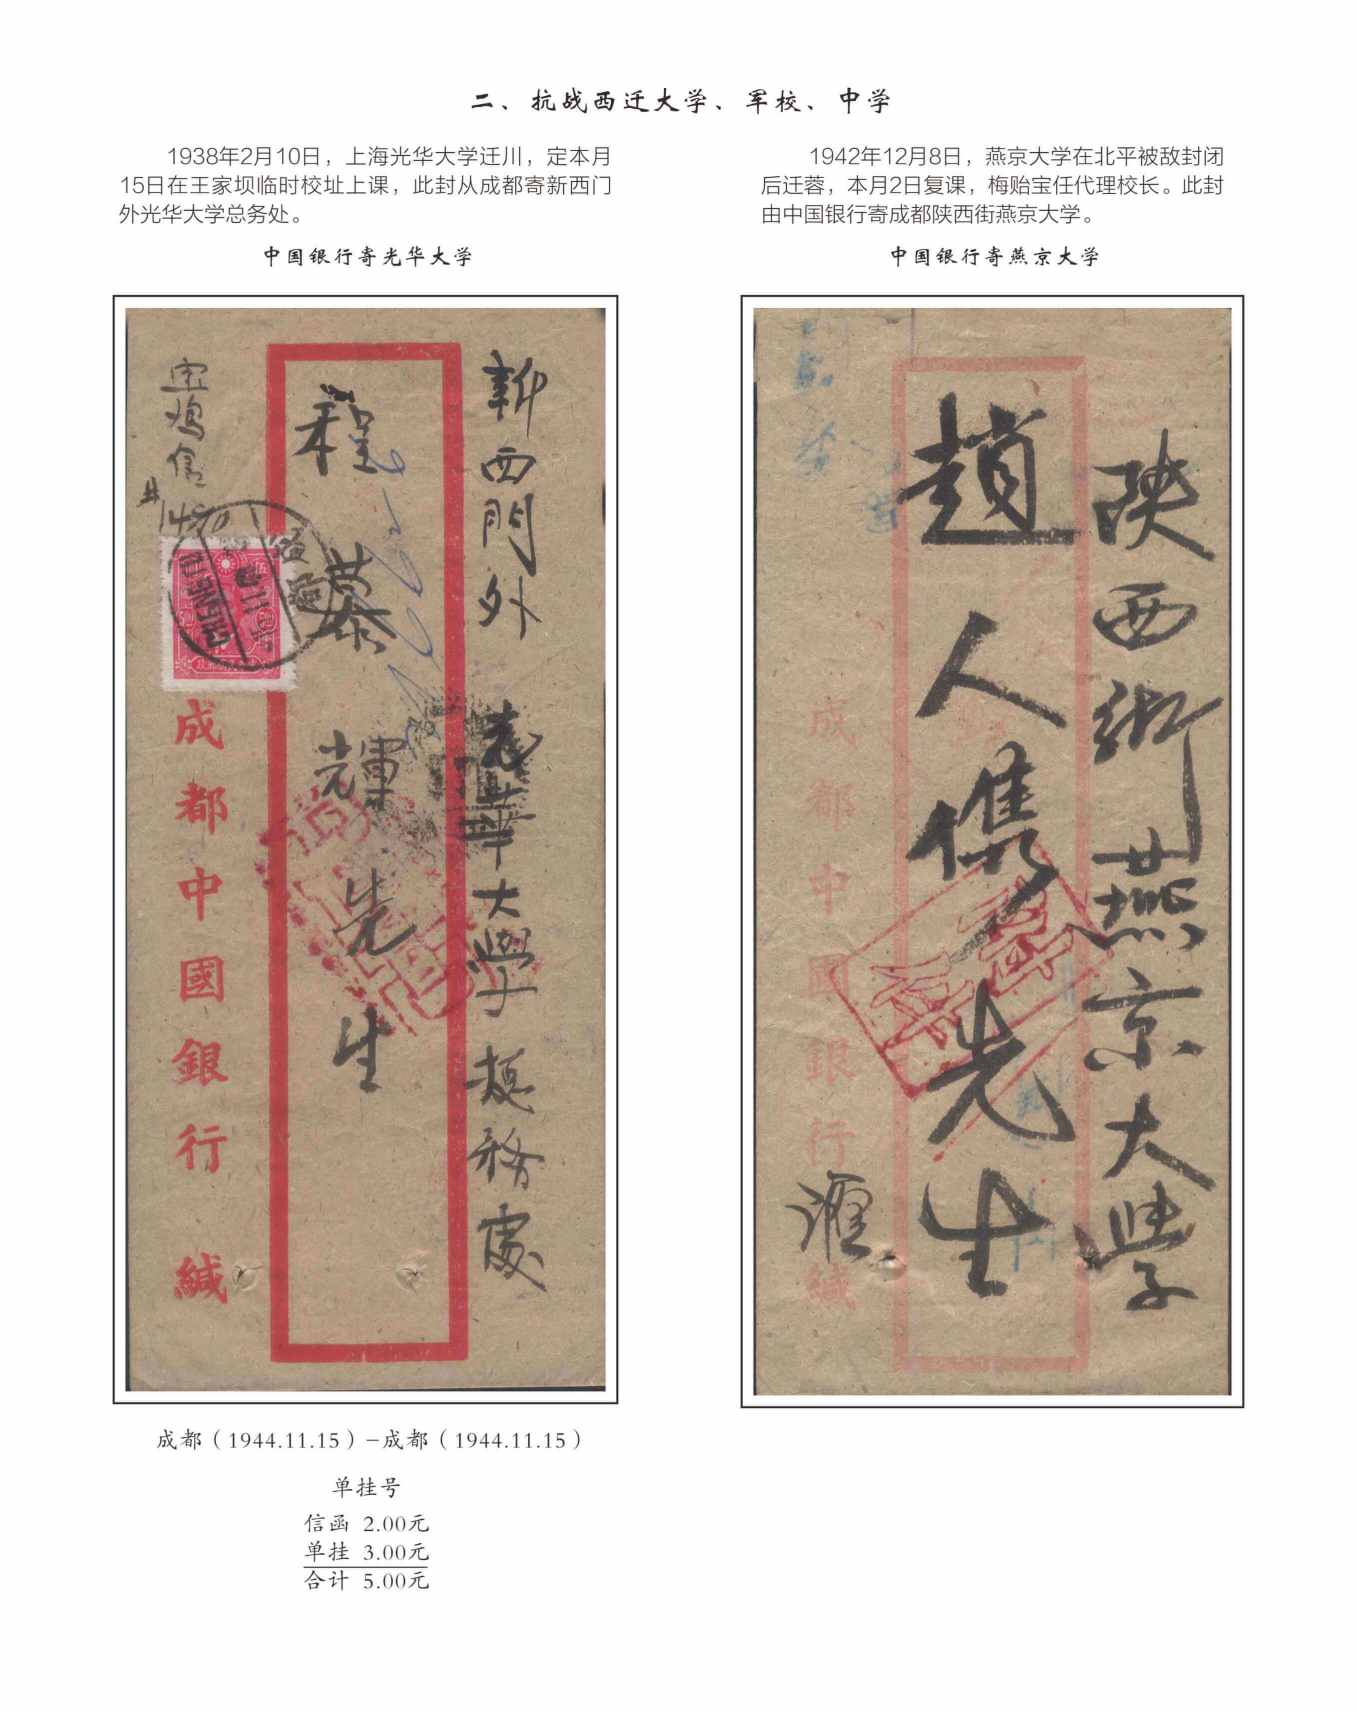 二、抗战西迁大学、军校、中学
1938年2月10日，上海光华大学迁川，定本月
15日在王家坝临时校址上课，此封从成都寄新西门
外光华大学总务处。
中国银行寄光华大学
新西門外 光華大學總務處
程泰輝先生
宝鸡信
成都中國銀行 緘
成都（1944.11.15）–成都（1944.11.15）
单挂号
信函 2.00元
单挂 3.00元
合计 5.00元
1942年12月8日，燕京大学在北平被敌封闭
后迁蓉，本月2日复课，梅贻宝任代理校长。此封
由中国银行寄成都陕西街燕京大学。
中国银行寄燕京大学
陝西街燕京大學
趙人儁先生
成都中國銀行 緘